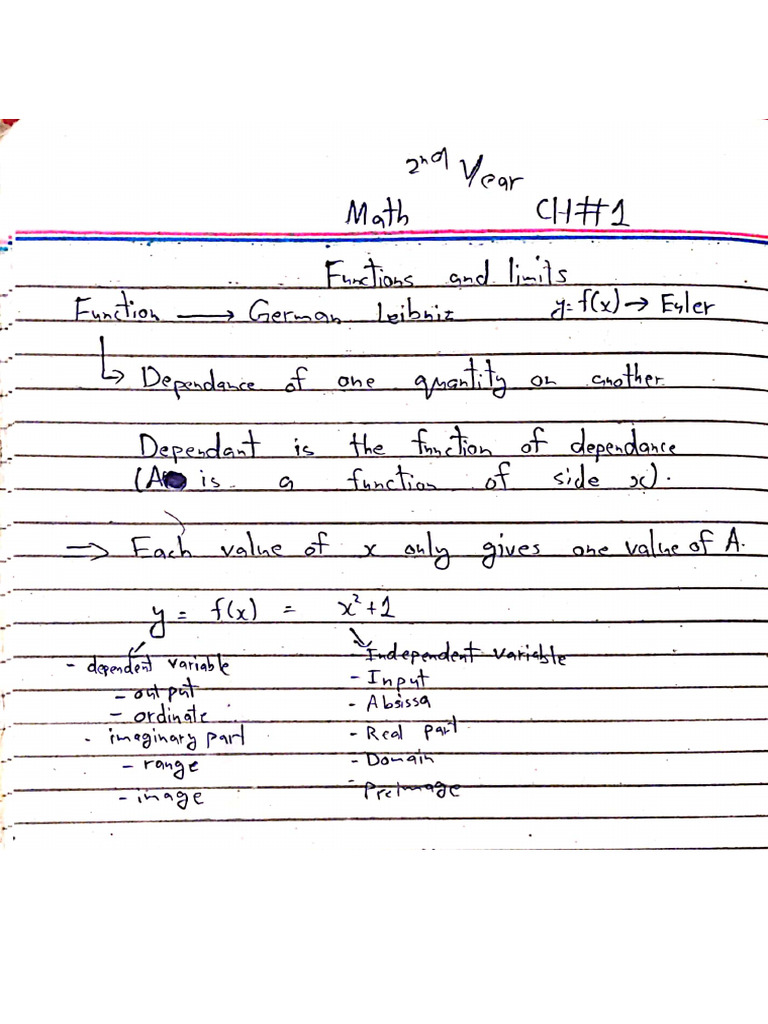 2nd Year
Math CH#1
Functions and limits
Function → German Leibniz y=f(x) → Euler
↳ Dependance of one quantity on another
Dependant is the function of dependance
(A is a function of side x).
⇒ Each value of x only gives one value of A.
y = f(x) = x²+1
- dependent variable
- output
- ordinate
- imaginary part
- range
- image
- Independent variable
- Input
- Absissa
- Real part
- Domain
- PreImage